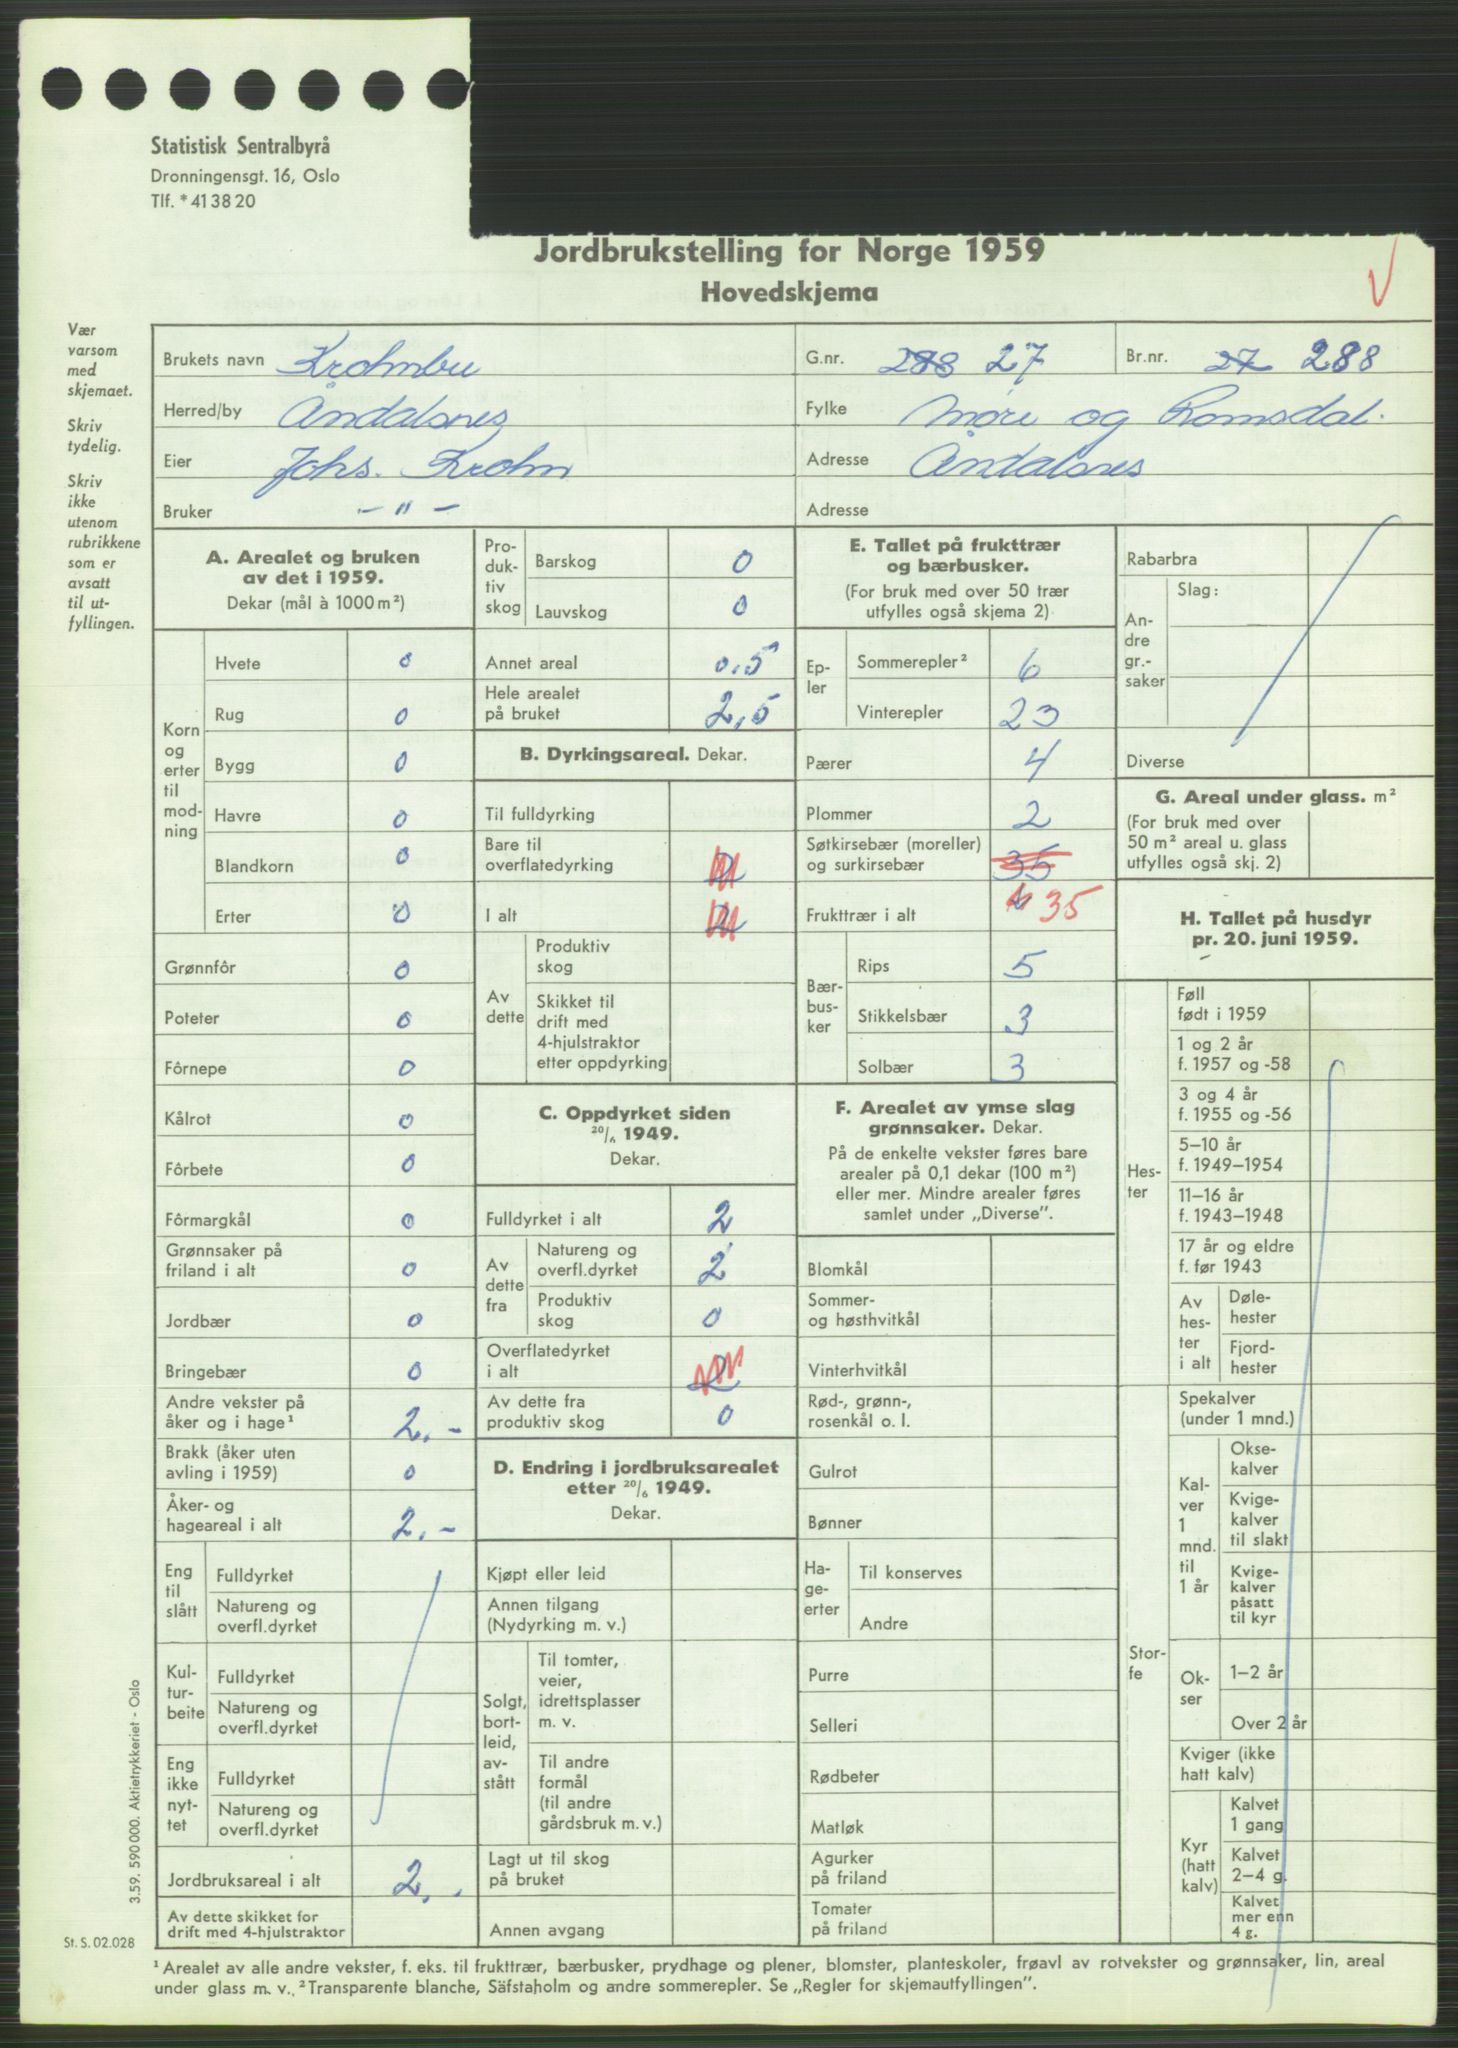 Statistisk Sentralbyrå
Dronningensgt. 16, Oslo
Tlf. * 41 38 20
Jordbrukstelling for Norge 1959
Hovedskjema
Vær
varsom
med
skjemaet.
Skriv
tydelig.
Skriv
ikke
utenom
rubrikkene
som er
avsatt
til ut-
fyllingen.
Brukets navn Krohnbu
G.nr. 288 27
Br.nr. 27 288
Herred/by Åndalsnes
Fylke Møre og Romsdal.
Eier Johs. Krohn
Adresse Åndalsnes
Bruker - " -
Adresse
A. Arealet og bruken
av det i 1959.
Dekar (mål à 1000 m²)
Korn
og
erter
til
mod-
ning
Hvete 0
Rug 0
Bygg 0
Havre 0
Blandkorn 0
Erter 0
Grønnfôr 0
Poteter 0
Fôrnepe 0
Kålrot 0
Fôrbete 0
Fôrmargkål 0
Grønnsaker på
friland i alt 0
Jordbær 0
Bringebær 0
Andre vekster på
åker og i hage¹ 2.-
Brakk (åker uten
avling i 1959) 0
Åker- og
hageareal i alt 2.-
Eng
til
slått
Fulldyrket
Natureng og
overfl.dyrket
Kul-
tur-
beite
Fulldyrket
Natureng og
overfl.dyrket
Eng
ikke
nyt-
tet
Fulldyrket
Natureng og
overfl.dyrket
Jordbruksareal i alt 2..
Av dette skikket for
drift med 4-hjulstraktor
Pro-
duk-
tiv
skog
Barskog 0
Lauvskog 0
Annet areal 0,5
Hele arealet
på bruket 2,5
B. Dyrkingsareal. Dekar.
Til fulldyrking
Bare til
overflatedyrking 2
I alt 2
Av
dette
Produktiv
skog
Skikket til
drift med
4-hjulstraktor
etter oppdyrking
C. Oppdyrket siden
20/6 1949.
Dekar.
Fulldyrket i alt 2
Av
dette
fra
Natureng og
overfl.dyrket 2
Produktiv
skog 0
Overflatedyrket
i alt 2
Av dette fra
produktiv skog 0
D. Endring i jordbruksarealet
etter 20/6 1949.
Dekar.
Kjøpt eller leid
Annen tilgang
(Nydyrking m. v.)
Solgt,
bort-
leid,
av-
stått
Til tomter,
veier,
idrettsplasser
m. v.
Til andre
formål
(til andre
gårdsbruk m. v.)
Lagt ut til skog
på bruket
Annen avgang
E. Tallet på frukttrær
og bærbusker.
(For bruk med over 50 trær
utfylles også skjema 2)
Ep-
ler
Sommerepler² 6
Vinterepler 23
Pærer 4
Plommer 2
Søtkirsebær (moreller)
og surkirsebær 35
Frukttrær i alt 35
Bær-
bus-
ker
Rips 5
Stikkelsbær 3
Solbær 3
F. Arealet av ymse slag
grønnsaker. Dekar.
På de enkelte vekster føres bare
arealer på 0,1 dekar (100 m²)
eller mer. Mindre arealer føres
samlet under „Diverse”.
Blomkål
Sommer-
og høsthvitkål
Vinterhvitkål
Rød-, grønn-,
rosenkål o. l.
Gulrot
Bønner
Ha-
ge-
erter
Til konserves
Andre
Purre
Selleri
Rødbeter
Matløk
Agurker
på friland
Tomater
på friland
Rabarbra
An-
dre
gr.-
saker
Slag:
Diverse
G. Areal under glass. m²
(For bruk med over
50 m² areal u. glass
utfylles også skj. 2)
H. Tallet på husdyr
pr. 20. juni 1959.
Hes-
ter
Føll
født i 1959
1 og 2 år
f. 1957 og -58
3 og 4 år
f. 1955 og -56
5–10 år
f. 1949–1954
11–16 år
f. 1943–1948
17 år og eldre
f. før 1943
Av
hes-
ter
i alt
Døle-
hester
Fjord-
hester
Stor-
fe
Spekalver
(under 1 mnd.)
Kal-
ver
1
mnd.
til
1 år
Okse-
kalver
Kvige-
kalver
til slakt
Kvige-
kalver
påsatt
til kyr
Ok-
ser
1–2 år
Over 2 år
Kviger (ikke
hatt kalv)
Kyr
(hatt
kalv)
Kalvet
1 gang
Kalvet
2–4 g.
Kalvet
mer enn
4 g.
3.59. 590 000. Aktietrykkeriet - Oslo
St. S. 02.028
¹ Arealet av alle andre vekster, f. eks. til frukttrær, bærbusker, prydhage og plener, blomster, planteskoler, frøavl av rotvekster og grønnsaker, lin, areal
under glass m. v., ² Transparente blanche, Säfstaholm og andre sommerepler. Se „Regler for skjemautfyllingen”.